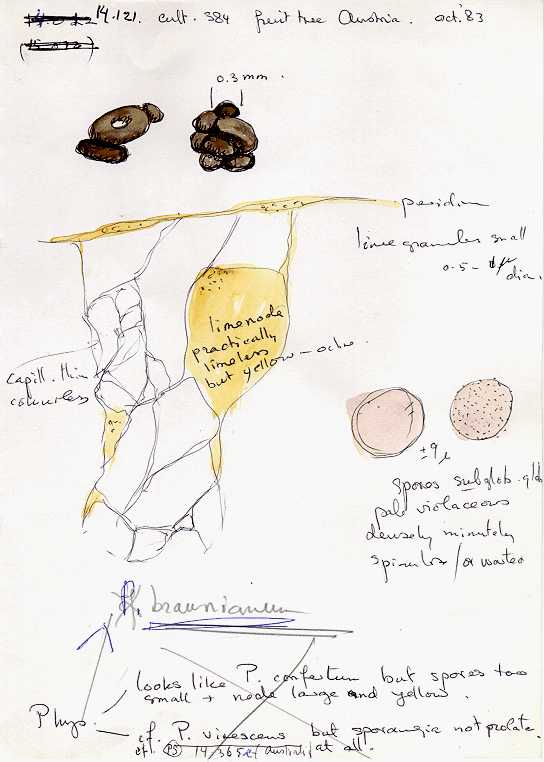 14.121. cult. 384 fruit tree Austria. oct. '83
0.3 mm.
peridium
lime granules small
0.5 - 1 µ dia.
limenode
practically
limeless
but yellow - ochre.
capill. thin
colourless
± 9 µ
spores subglob. glob
pale violaceous
densely minutely
spinulose / or warted
P. braunianum
looks like P. confertum but spores too
small + node large and yellow.
Phys.
cf. P. virescens but sporangia not prolate
at all.
cf. PS 14/365 (Australia)